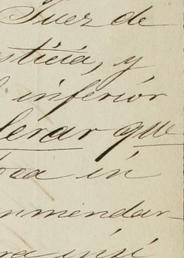 Juez de
sticia, y
l inferior
lerar que
oca in
mmendar-
ra insi